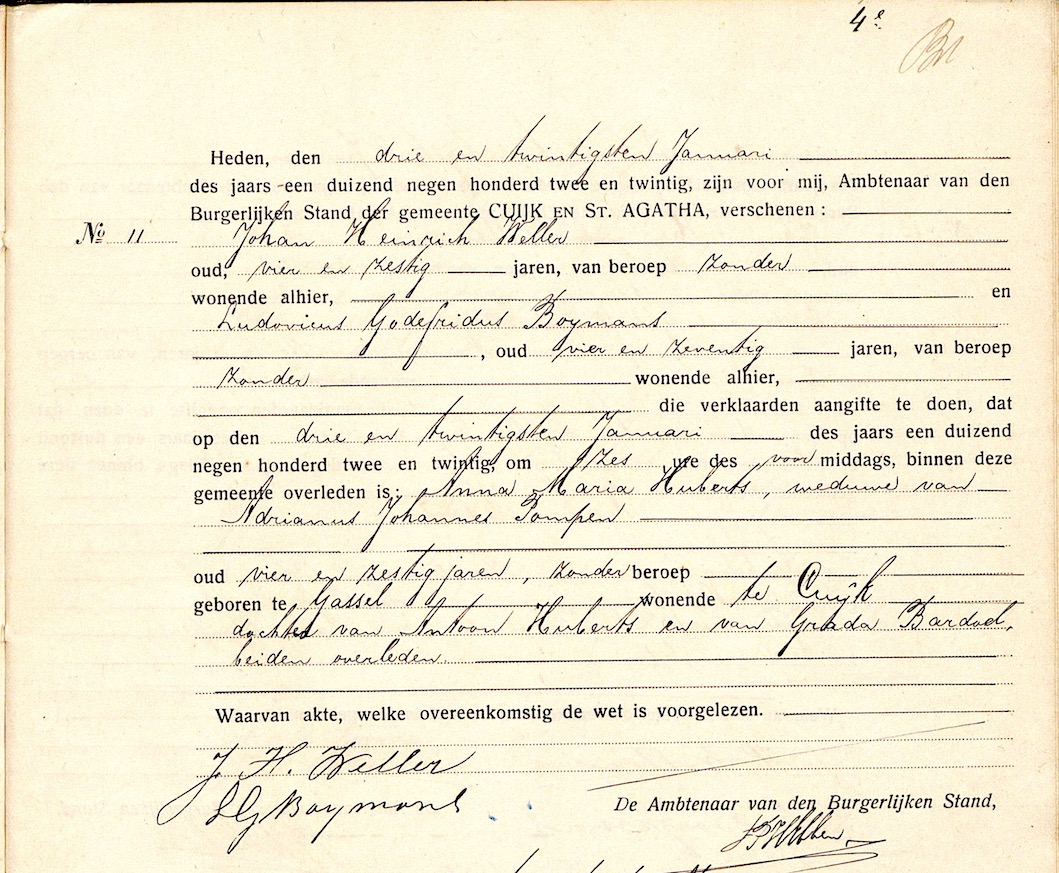 4e
Heden, den drie en twintigsten Januari
des jaars een duizend negen honderd twee en twintig, zijn voor mij, Ambtenaar van den
Burgerlijken Stand der gemeente CUIJK EN ST. AGATHA, verschenen :
No 11 Johan Heinrich Weller
oud, vier en zestig jaren, van beroep zonder
wonende alhier, en
Ludovicus Godefridus Boymans
, oud vier en zeventig jaren, van beroep
zonder wonende alhier,
die verklaarden aangifte te doen, dat
op den drie en twintigsten Januari des jaars een duizend
negen honderd twee en twintig, om zes ure des voormiddags, binnen deze
gemeente overleden is; Anna Maria Huberts, weduwe van
Adrianus Johannes Pompen
oud vier en zestig jaren, zonder beroep
geboren te Gassel wonende te Cuijk
dochter van Antoon Huberts en van Grada Bardoel,
beiden overleden.
Waarvan akte, welke overeenkomstig de wet is voorgelezen.
J. H. Weller
LG Boymans
De Ambtenaar van den Burgerlijken Stand,